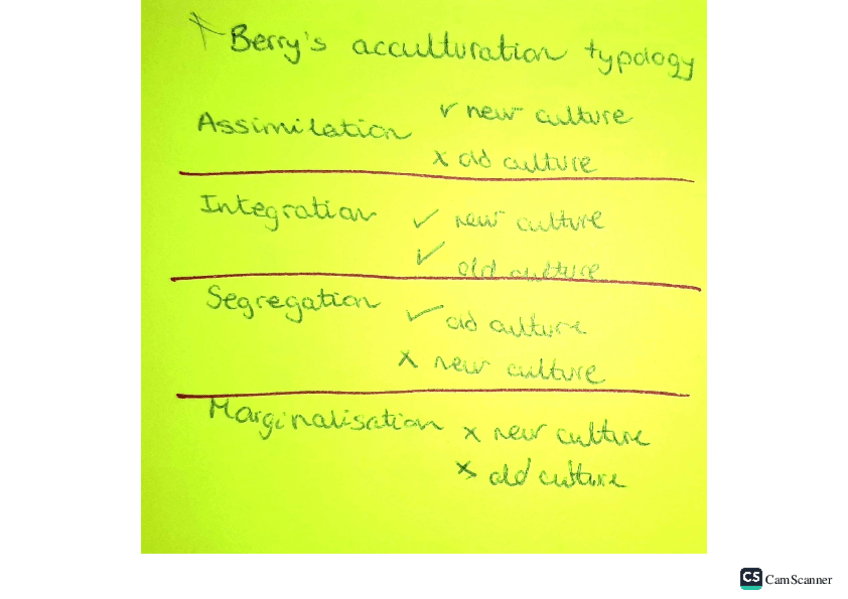 Berry's acculturation typology
Assimilation ✓ new culture
x old culture
Integration ✓ new culture
✓ old culture
Segregation ✓ old culture
x new culture
Marginalisation x new culture
x old culture
CS CamScanner